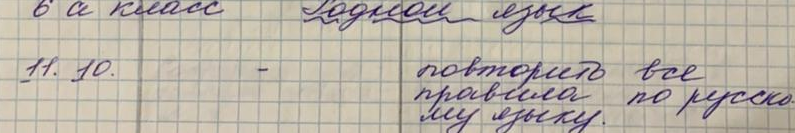 6 а класс Родной язык
11. 10. - повторить все
правила по русско
му языку.